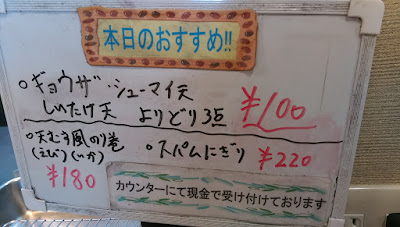 本日のおすすめ!!
○ギョウザ・シューマイ天
しいたけ天 よりどり3点 ¥100
○天むす風のり巻
(えび)(いか)
¥180
○スパムにぎり ¥220
カウンターにて現金で受け付けております